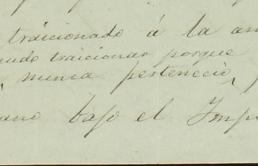 traicionado á la
traicionar porque
nunca perteneció
bajo el